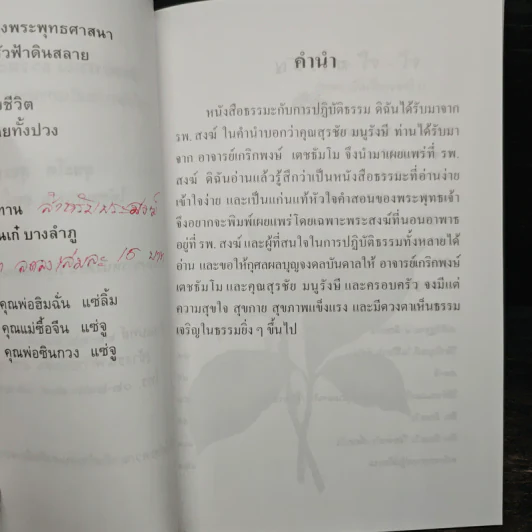 งพระพุทธศาสนา
ัวฟ้าดินสลาย
ชีวิต
ยทั้งปวง
ทาน สำหรับพระสงฆ์
ณเก๋ บางลำภู
เล่มละ 15 บาท
คุณพ่อฮิมฉั่น แซ่ลิ้ม
คุณแม่ซื้อจีน แซ่จู
คุณพ่อซินกวง แซ่จู
คำนำ
หนังสือธรรมะกับการปฏิบัติธรรม ดิฉันได้รับมาจาก
รพ. สงฆ์ ในคำนำบอกว่าคุณสุรชัย มนูรังษี ท่านได้รับมา
จาก อาจารย์เกริกพงษ์ เตชธัมโม จึงนำมาเผยแพร่ที่ รพ.
สงฆ์ ดิฉันอ่านแล้วรู้สึกว่าเป็นหนังสือธรรมะที่อ่านง่าย
เข้าใจง่าย และเป็นแก่นแท้หัวใจคำสอนของพระพุทธเจ้า
จึงอยากจะพิมพ์เผยแพร่โดยเฉพาะพระสงฆ์ที่นอนอาพาธ
อยู่ที่ รพ. สงฆ์ และผู้ที่สนใจในการปฏิบัติธรรมทั้งหลายได้
อ่าน และขอให้กุศลผลบุญจงดลบันดาลให้ อาจารย์เกริกพงษ์
เตชธัมโม และคุณสุรชัย มนูรังษี และครอบครัว จงมีแต่
ความสุขใจ สุขกาย สุขภาพแข็งแรง และมีดวงตาเห็นธรรม
เจริญในธรรมยิ่ง ๆ ขึ้นไป